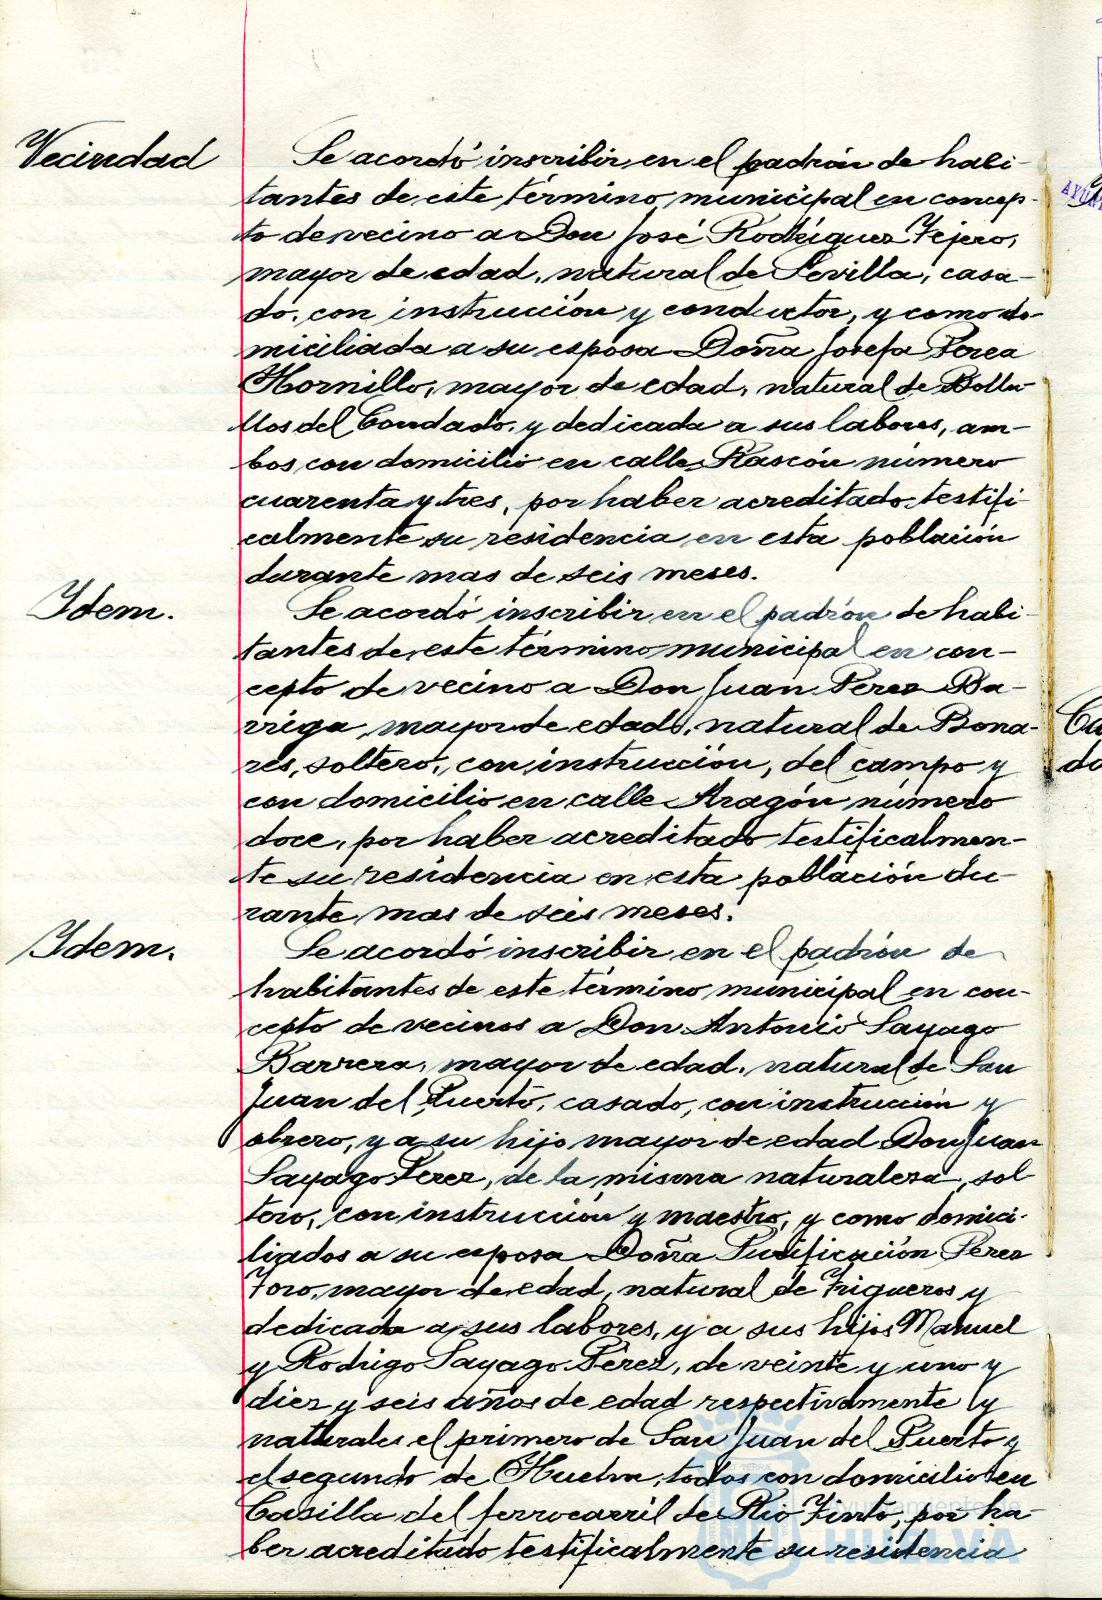 Vecindad
Se acordó inscribir en el padrón de habi-
tantes de este término municipal en concep-
to de vecino a Don José Rodríguez Tejero,
mayor de edad, natural de Sevilla, casa-
do, con instrucción y conductor, y como do-
miciliada a su esposa Doña Josefa Perea
Hornillo, mayor de edad, natural de Bollu-
llos del Condado, y dedicada a sus labores, am-
bos con domicilio en calle Rascón número
cuarenta y tres, por haber acreditado testifi
calmente su residencia en esta población
durante mas de seis meses.
Idem.
Se acordó inscribir en el padrón de habi-
tantes de este término municipal en con-
cepto de vecino a Don Juan Perez Ba-
rriga, mayor de edad, natural de Bona-
res, soltero, con instrucción, del campo y
con domicilio en calle Aragón número
doce, por haber acreditado testificalmen-
te su residencia en esta población du-
rante mas de seis meses.
Idem.
Se acordó inscribir en el padrón de
habitantes de este término municipal en con-
cepto de vecinos a Don Antonio Sayago
Barrera, mayor de edad, natural de San
Juan del Puerto, casado, con instrucción y
obrero, y a su hijo mayor de edad Don Juan
Sayago Perez, de la misma naturaleza, sol
tero, con instrucción y maestro, y como domici-
liados a su esposa Doña Purificación Perez
Toro, mayor de edad, natural de Trigueros y
dedicada a sus labores, y a sus hijos Manuel
y Rodrigo Sayago Pérez, de veinte y uno y
diez y seis años de edad respectivamente y
naturales el primero de San Juan del Puerto y
el segundo de Huelva, todos con domicilio en
Casilla del ferrocarril de Rio Tinto, por ha-
ber acreditado testificalmente su residencia
Ayuntamiento de
HUELVA